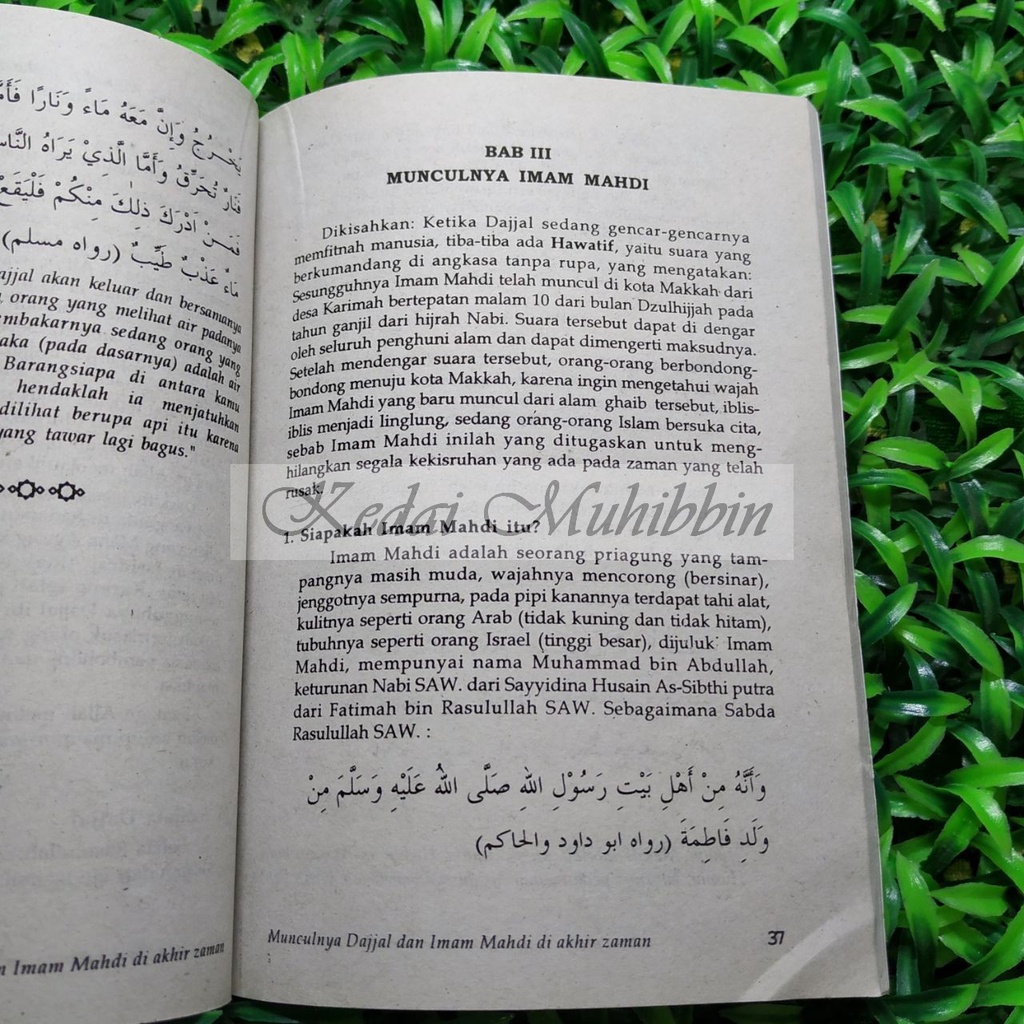 يَخْرُجُ وَإِنَّ مَعَهُ مَاءً وَنَارًا
فَنَارٌ تُحَرِّقُ وَأَمَّا الَّذِيْ يَرَاهُ
فَمَنْ اَدْرَكَ ذٰلِكَ مِنْكُمْ فَلْيَقَعْ
مَاءٌ عَذْبٌ طَيِّبٌ (رواه مسلم)
akan keluar dan bersamanya
orang yang melihat air padanya
sedang orang yang
(pada dasarnya) adalah air
Barangsiapa di antara kamu
hendaklah ia menjatuhkan
dilihat berupa api itu karena
yang tawar lagi bagus."
Imam Mahdi di akhir zaman
BAB III
MUNCULNYA IMAM MAHDI
Dikisahkan: Ketika Dajjal sedang gencar-gencarnya
memfitnah manusia, tiba-tiba ada Hawatif, yaitu suara yang
berkumandang di angkasa tanpa rupa, yang mengatakan:
Sesungguhnya Imam Mahdi telah muncul di kota Makkah dari
desa Karimah bertepatan malam 10 dari bulan Dzulhijjah pada
tahun ganjil dari hijrah Nabi. Suara tersebut dapat di dengar
oleh seluruh penghuni alam dan dapat dimengerti maksudnya.
Setelah mendengar suara tersebut, orang-orang berbondong-
bondong menuju kota Makkah, karena ingin mengetahui wajah
Imam Mahdi yang baru muncul dari alam ghaib tersebut, iblis-
iblis menjadi linglung, sedang orang-orang Islam bersuka cita,
sebab Imam Mahdi inilah yang ditugaskan untuk meng-
hilangkan segala kekisruhan yang ada pada zaman yang telah
rusak.
Kedai Muhibbin
1. Siapakah Imam Mahdi itu?
Imam Mahdi adalah seorang priagung yang tam-
pangnya masih muda, wajahnya mencorong (bersinar),
jenggotnya sempurna, pada pipi kanannya terdapat tahi alat,
kulitnya seperti orang Arab (tidak kuning dan tidak hitam),
tubuhnya seperti orang Israel (tinggi besar), dijuluk: Imam
Mahdi, mempunyai nama Muhammad bin Abdullah,
keturunan Nabi SAW. dari Sayyidina Husain As-Sibthi putra
dari Fatimah bin Rasulullah SAW. Sebagaimana Sabda
Rasulullah SAW. :
وَأَنَّهُ مِنْ أَهْلِ بَيْتِ رَسُوْلِ اللهِ صَلَّى اللهُ عَلَيْهِ وَسَلَّمَ مِنْ
وَلَدِ فَاطِمَةَ (رواه ابو داود والحاكم)
Munculnya Dajjal dan Imam Mahdi di akhir zaman 37